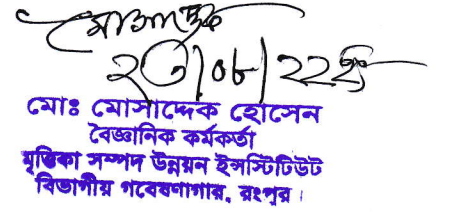 মোসাদ্দেক
২৩/০৮/২২ইং
মোঃ মোসাদ্দেক হোসেন
বৈজ্ঞানিক কর্মকর্তা
মৃত্তিকা সম্পদ উন্নয়ন ইন্সস্টিটিউট
বিভাগীয় গবেষণাগার, রংপুর।